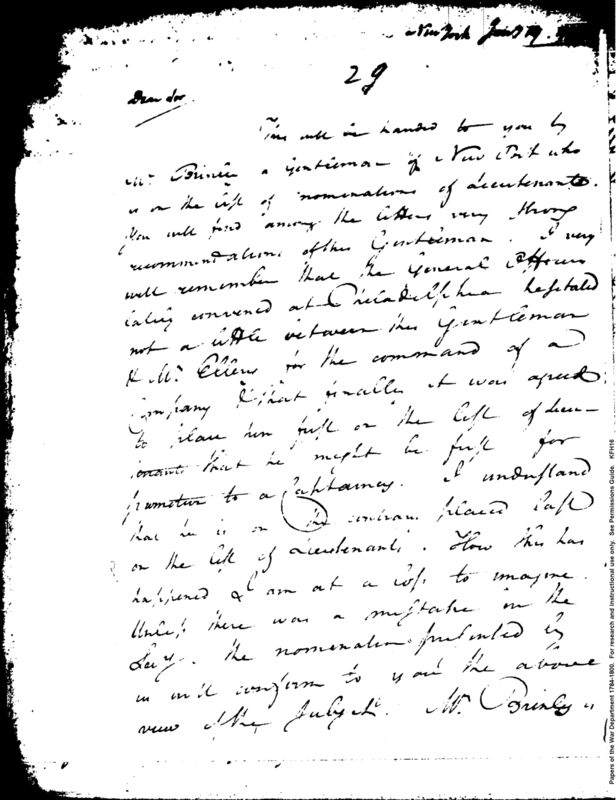 New York Jan 19.
29
Dear Sir
This will be handed to you by
Mr. Brinley a Gentleman of New Port who
is on the list of nominations of Lieutenants.
You will find among the letters very strong
recommendations of this Gentleman. I very
well remember that the General Officers
lately convened at Philadelphia hesitated
not a little between this Gentleman
& Mr. Ellery for the command of a
Company & that finally it was agreed
to place him first on the list of Lieu-
tenants that he might be first for
promotion to a Captaincy. I understand
that he is on the contrary placed last
on the list of Lieutenants. How this has
happened I am at a loss to imagine.
Unless there was a mistake in the
the nomination presented by
us will conform to your the above
view of the subject. Mr. Brinley is
Papers of the War Department 1784-1800. For research and instructional use only. See Permissions Guide. KFH16